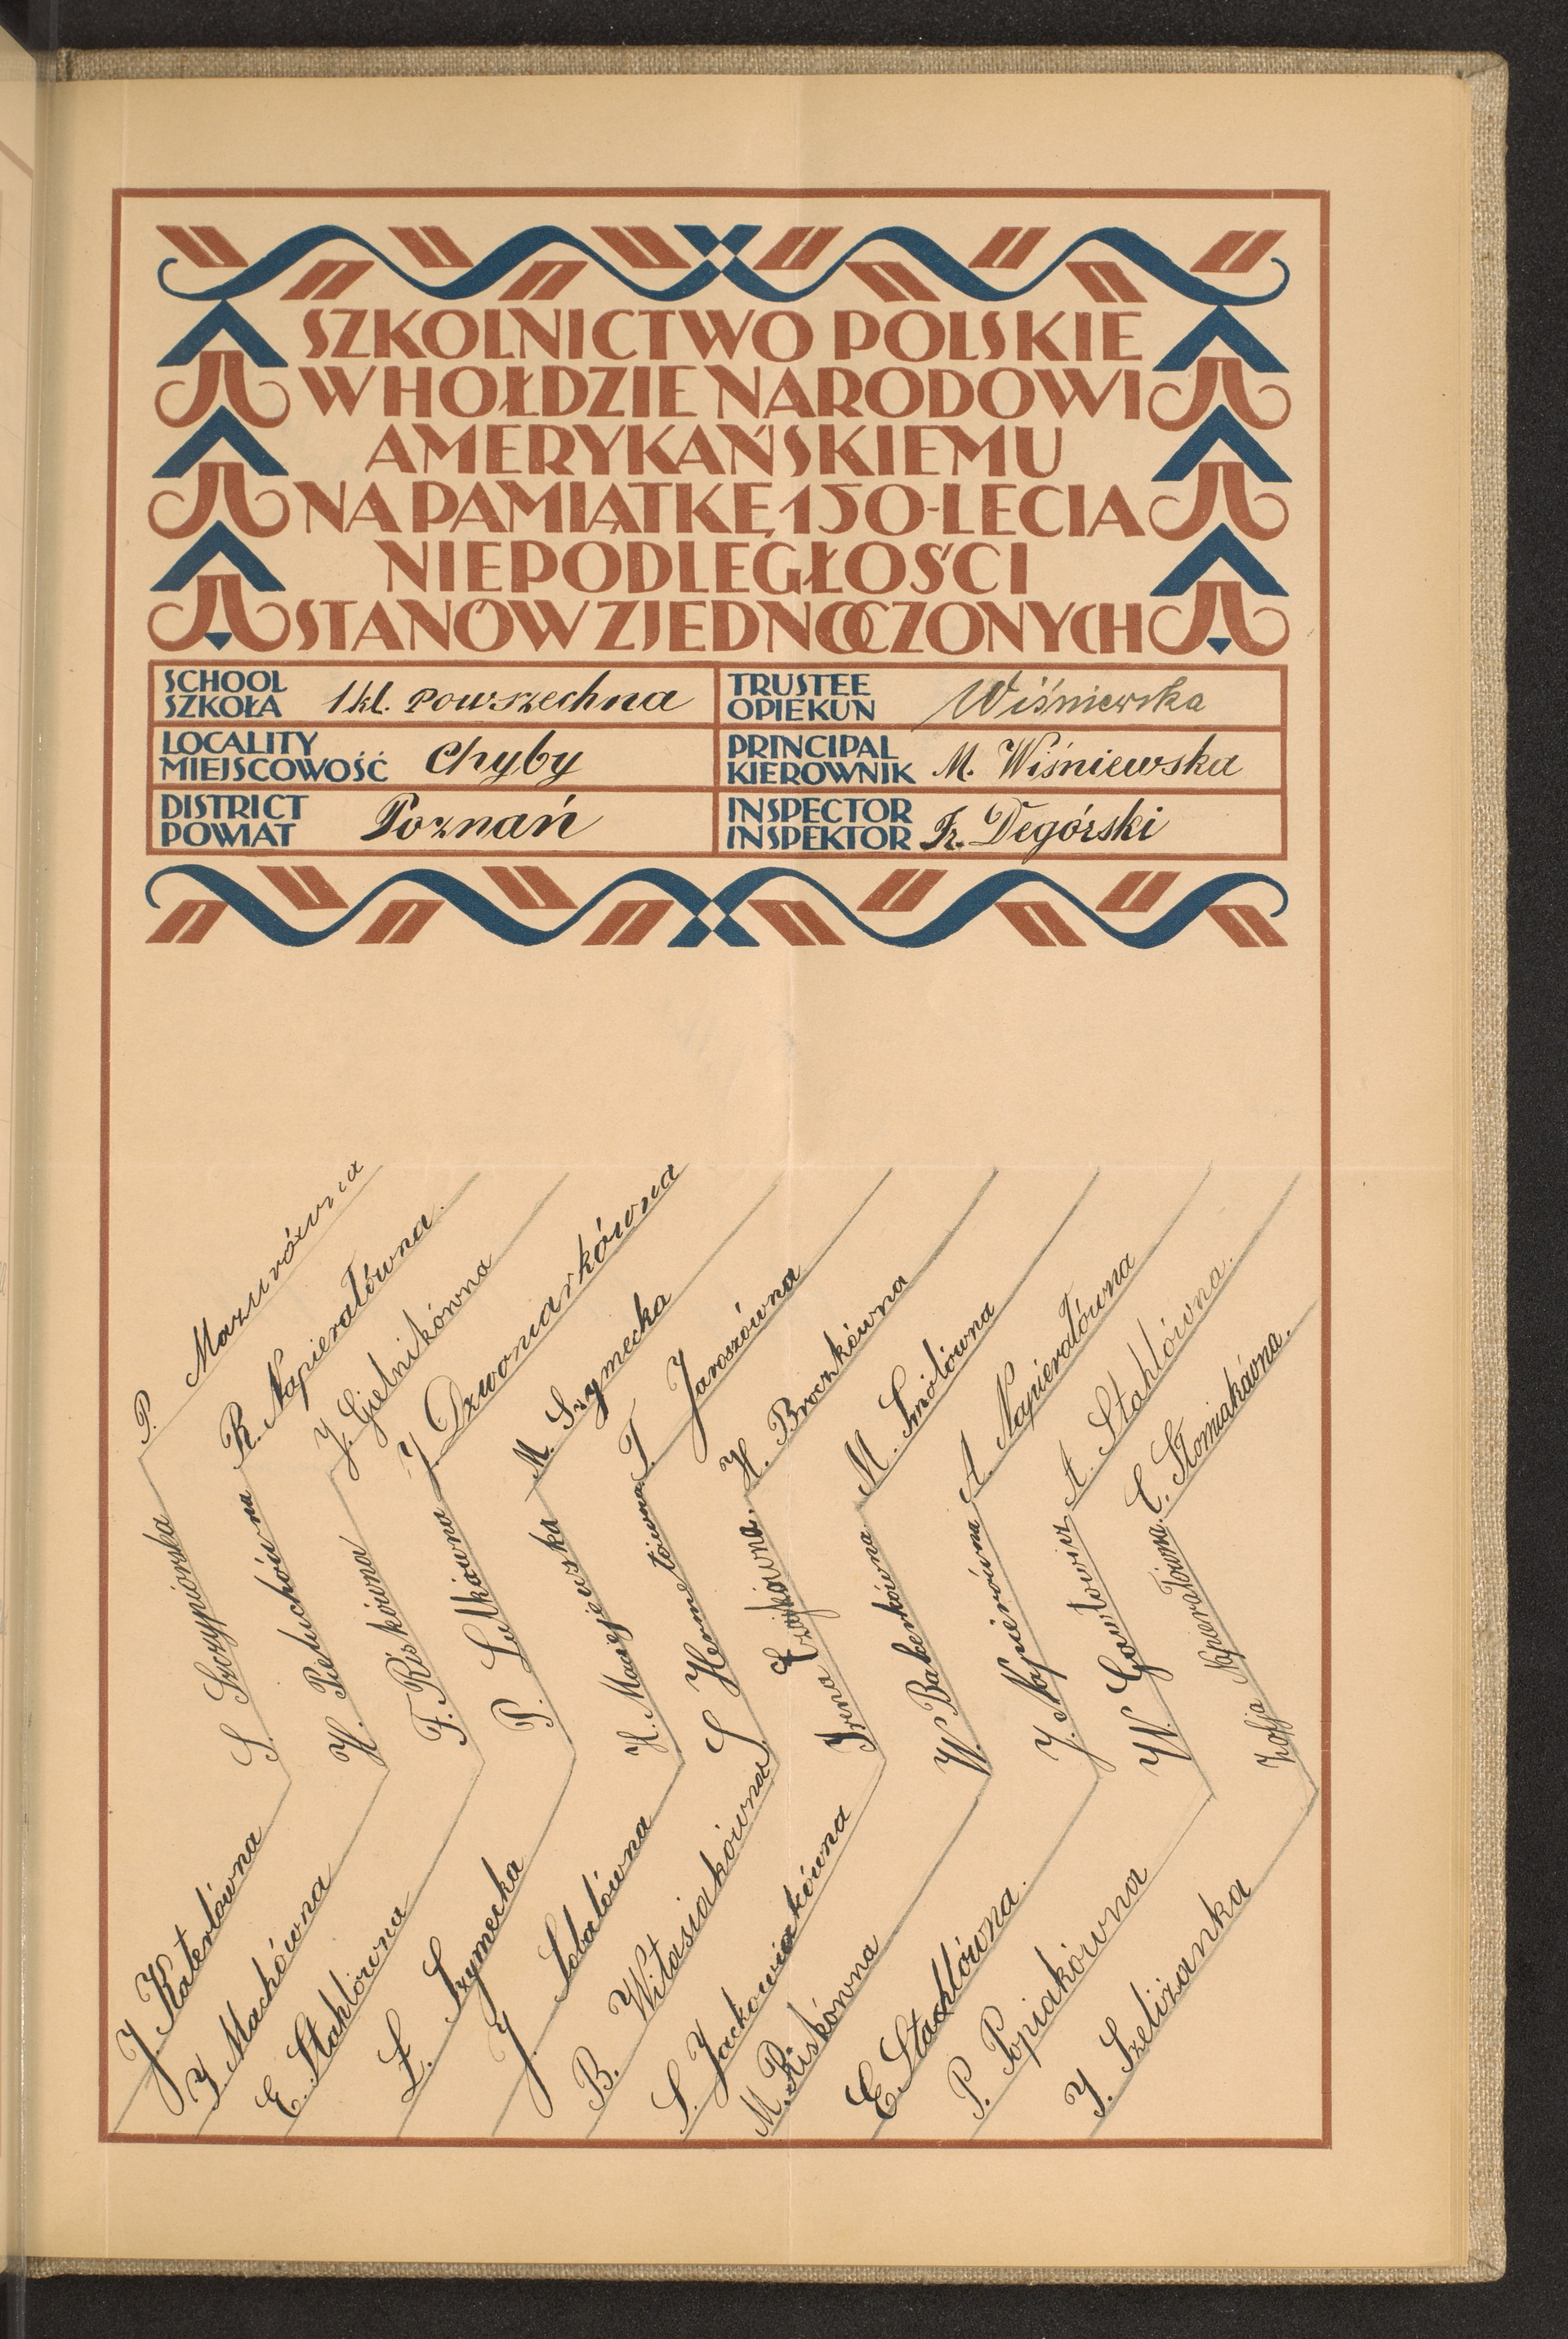 SZKOLNICTWO POLSKIE
W HOŁDZIE NARODOWI
AMERYKAŃSKIEMU
NA PAMIĄTKĘ 150-LECIA
NIEPODLEGŁOŚCI
STANÓW ZJEDNOCZONYCH
SCHOOL
SZKOŁA 1 kl. powszechna
TRUSTEE
OPIEKUN Wiśniewska
LOCALITY
MIEJSCOWOŚĆ Chyby
PRINCIPAL
KIEROWNIK M. Wiśniewska
DISTRICT
POWIAT Poznań
INSPECTOR
INSPEKTOR Fr. Degórski
P. Mazurówna
R. Napierałówna.
J. Gielnikówna
J. Dzwoniarkówna
M. Szymecka
T. Jaroszówna
H. Broczkówna
M. Smolówna
A. Napierałówna
A. Stahlówna.
C. Słomiakówna.
S. Szczypiorska
H. Pieluchówna
F. Riskówna
P. Lulkówna
H. Maciejewska
S. Hermelówna
Irena Czajkówna.
W. Baberkówna.
J. Napierówna
W. Gawłowicz
Zofja Napierałówna.
J. Katerlówna
J. Machówna
E. Stahlówna
Ł. Szymecka
J. Sobalówna
B. Witasiakówna
S. Jackowiakówna
M. Riskówna
E. Stachlówna.
P. Popiakówna
J. Szeliżanka